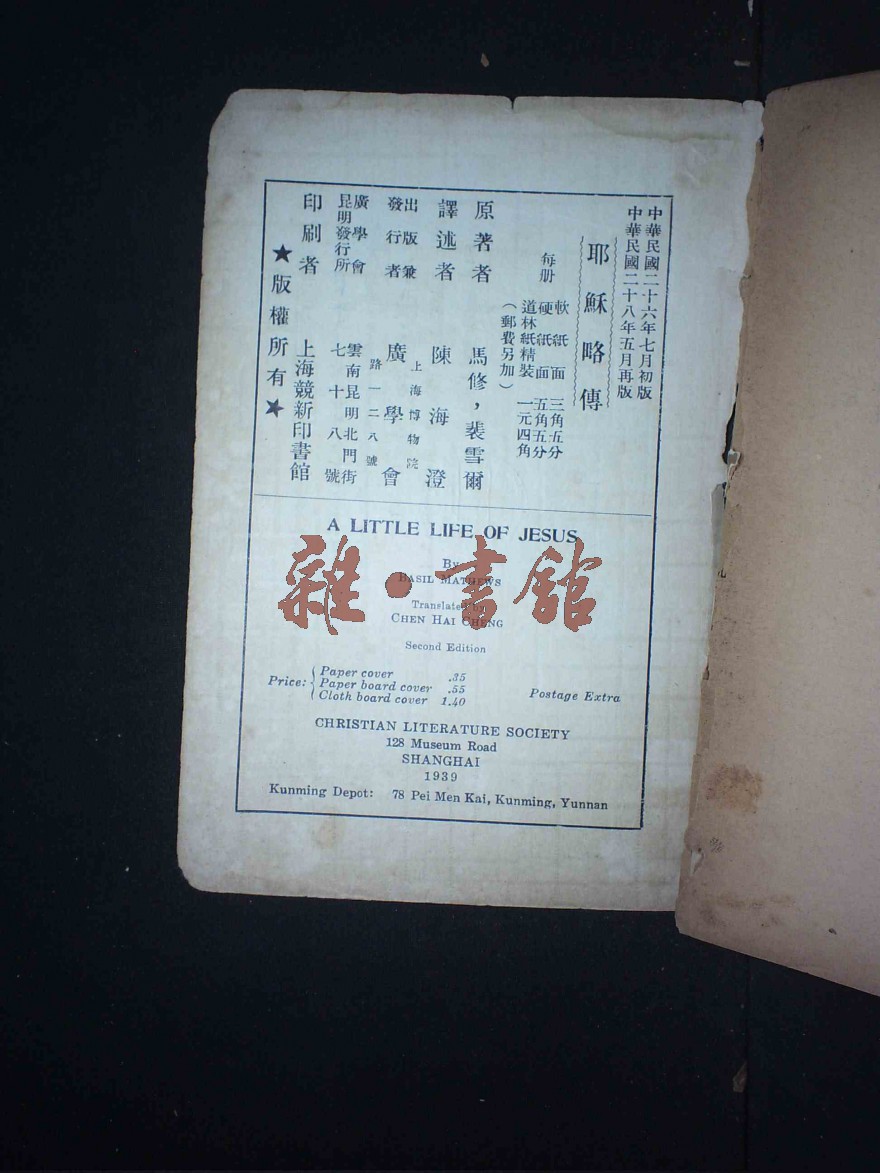 中華民國二十六年七月初版
中華民國二十八年五月再版
耶穌略傳
每册
軟紙面 三角五分
硬紙面 五角五分
道林紙精裝 一元四角
（郵費另加）
原著者 馬修，裴雪爾
譯述者 陳海澄
出版兼
發行者
上海博物院
廣學會
路一二八號
廣學會
昆明發行所
雲南昆明北門街
七十八號
印刷者 上海競新印書館
★版權所有★
A LITTLE LIFE OF JESUS
By
BASIL MATHEWS
Translated by
CHEN HAI CHENG
Second Edition
Price:
Paper cover .35
Paper board cover .55
Cloth board cover 1.40
Postage Extra
CHRISTIAN LITERATURE SOCIETY
128 Museum Road
SHANGHAI
1939
Kunming Depot: 78 Pei Men Kai, Kunming, Yunnan
雜·書館